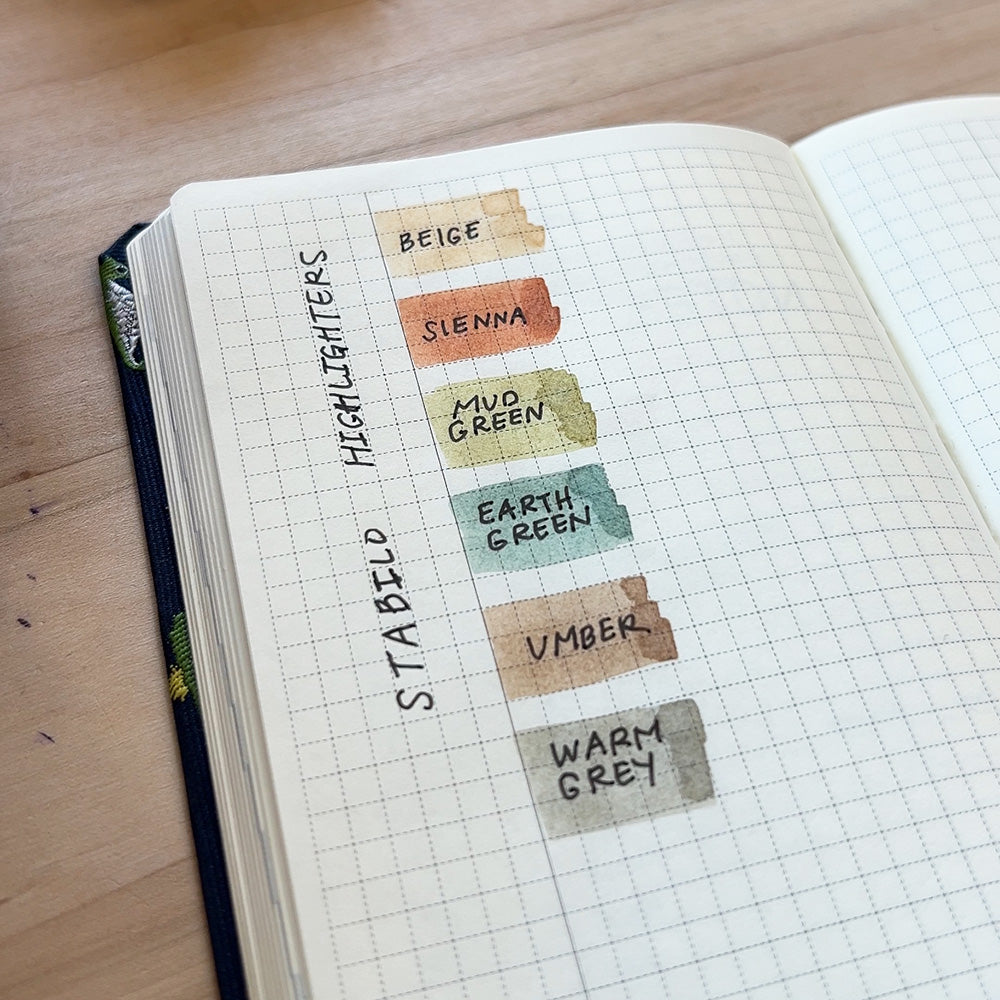 STABILO HIGHLIGHTERS
BEIGE
SIENNA
MUD
GREEN
EARTH
GREEN
UMBER
WARM
GREY